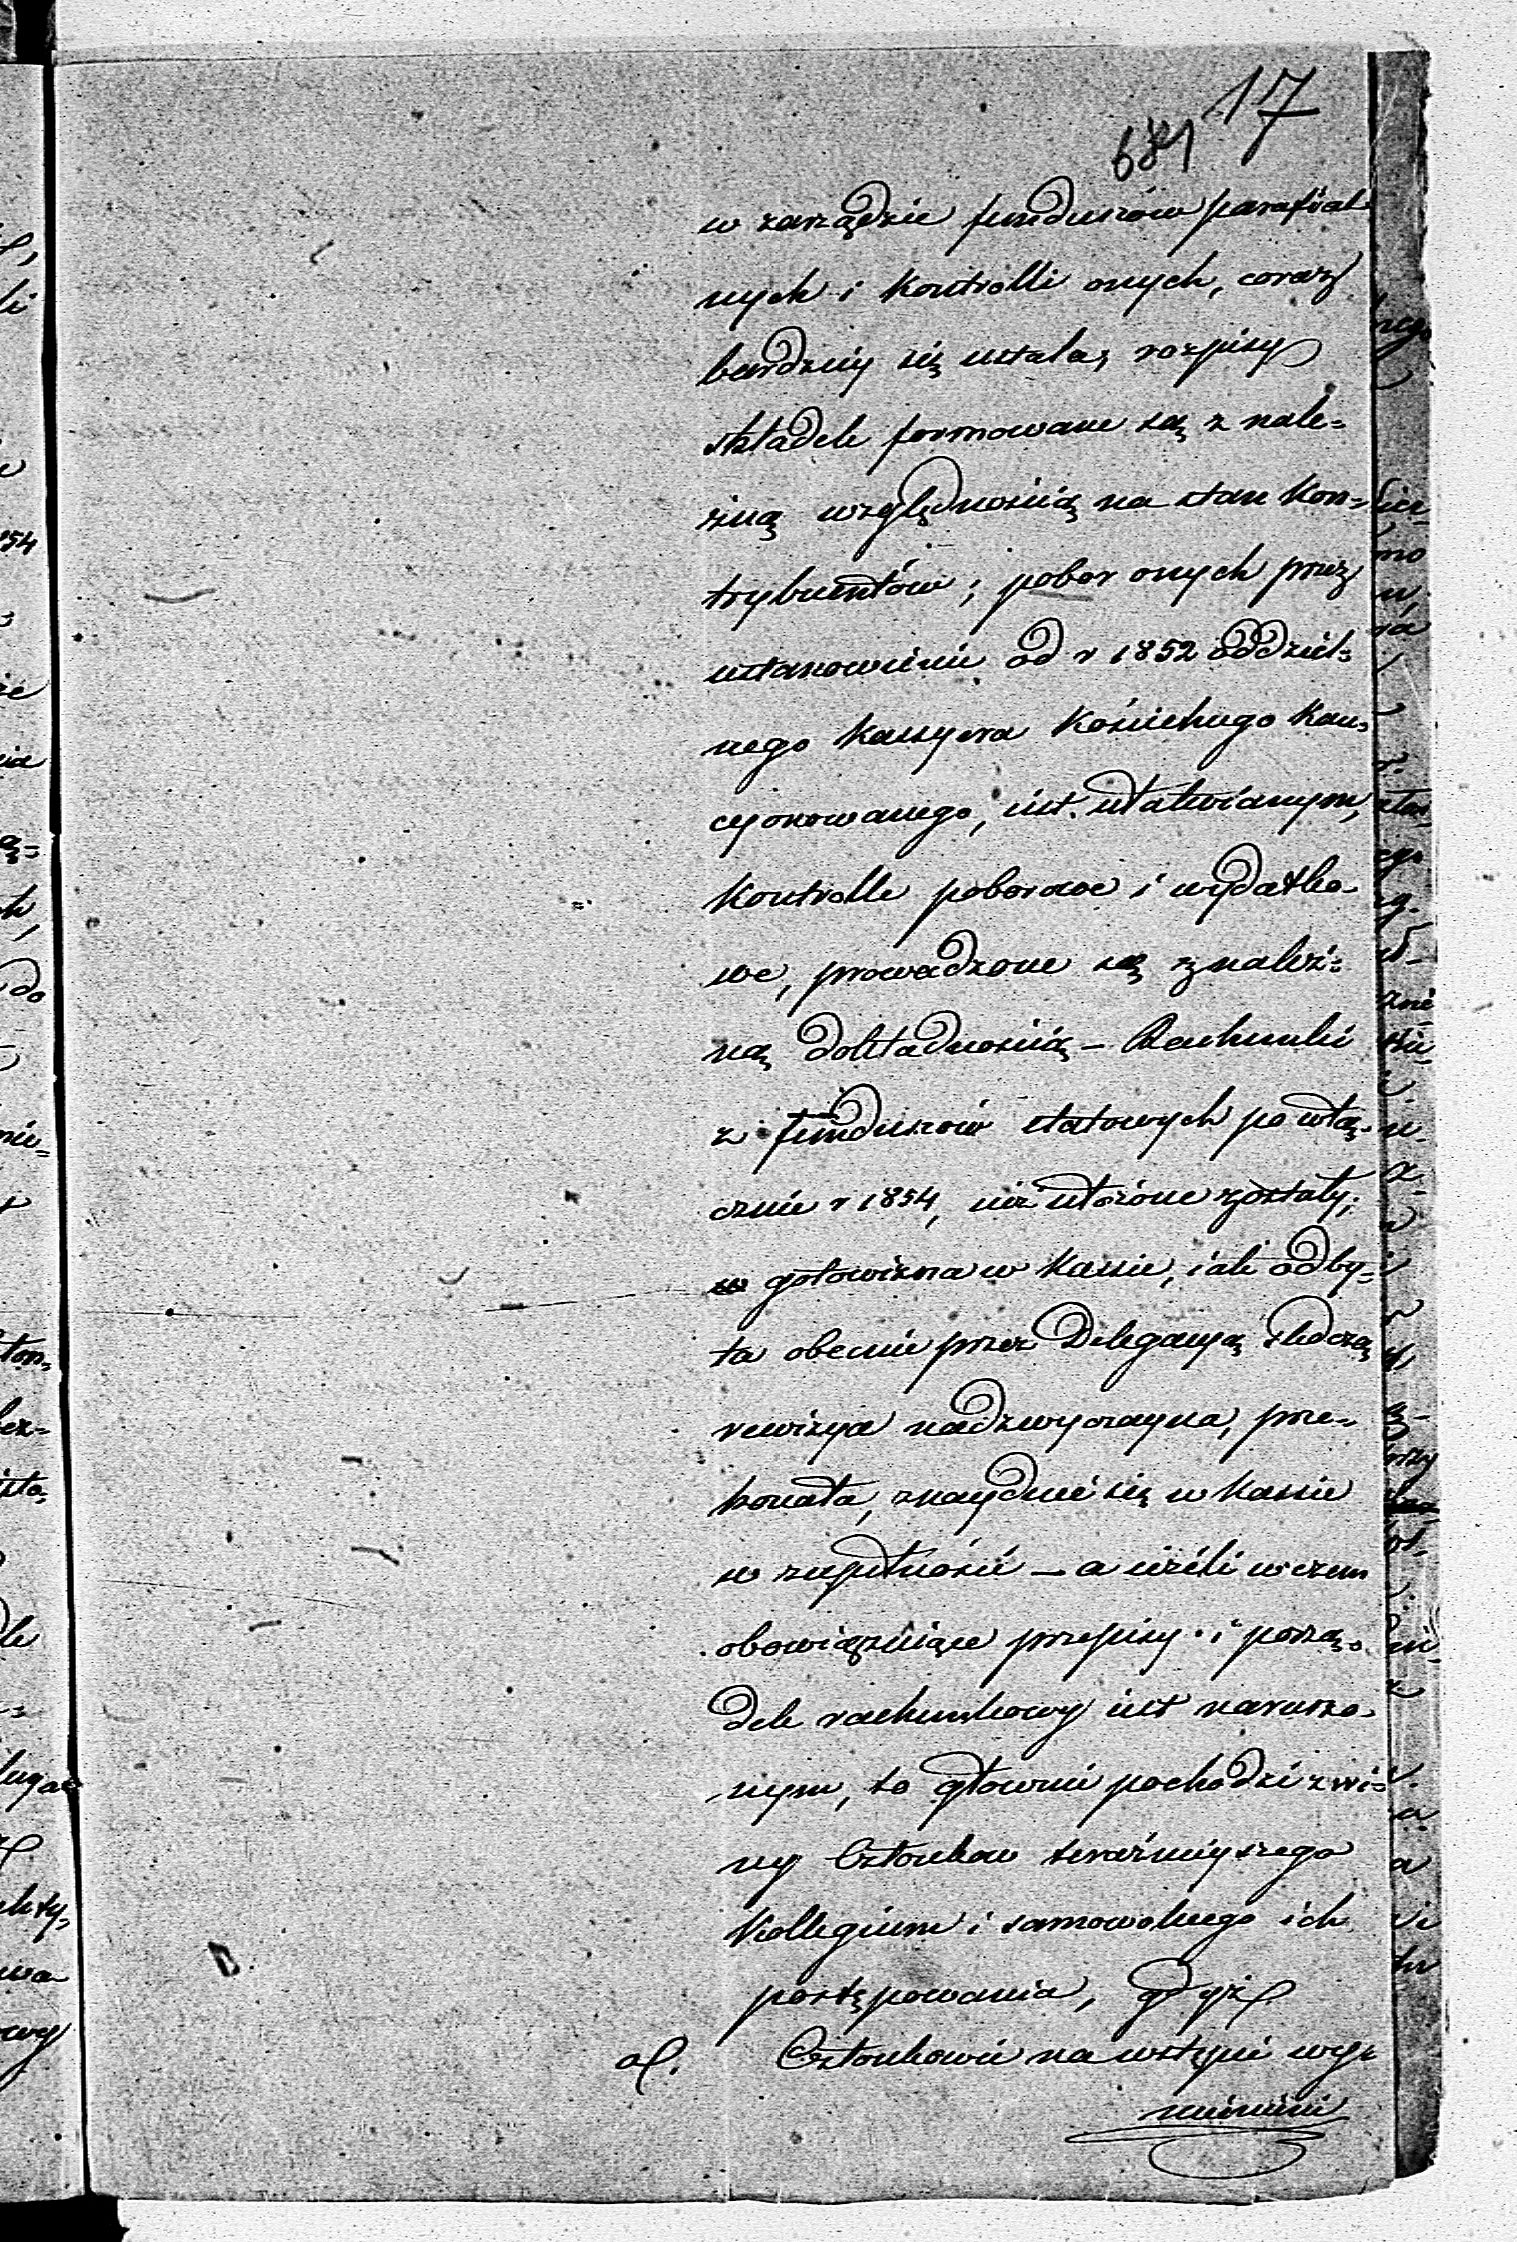 17
681
w zarządzie funduszów parafial-
nych i kontrolli onych, coraz
bardziey się ustala, rozpisy
składek formowane są z nale=
żną względnością na stan kon=
trybuentów; pobor onych przez
ustanowienie od r 1852 oddziel=
nego kassyera kościelnego kau=
cyonowanego, iest ułatwianym,
kontrolle poborowe i wydatko-
we, prowadzone są z należi=
ną dokładnością – Rachunki
z funduszów etatowych po włą-
cznie r 1854, iuż ułożone zostały;
gotowizna w kassie, iak odby=
ta obecnie przez Delegacyą śledczą
rewizya nadzwyczayna, prze=
konała, znayduie się w kassie
w zupełności – a ieżeli w czem
obowiązuiące przepisy i porzą-
dek rachunkowy iest naruszo-
nym, to głownie pochodzi z wi=
ny Członkow teraźnieyszego
Kollegium i samowolnego ich
postępowania, gdyż
a/. Członkowie na wstępie wy=
mienieni